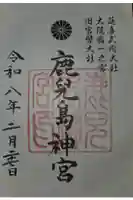 延喜式内大社
大隅國一之宮
旧官幣大社
鹿兒島神宮
令和八年二月二日